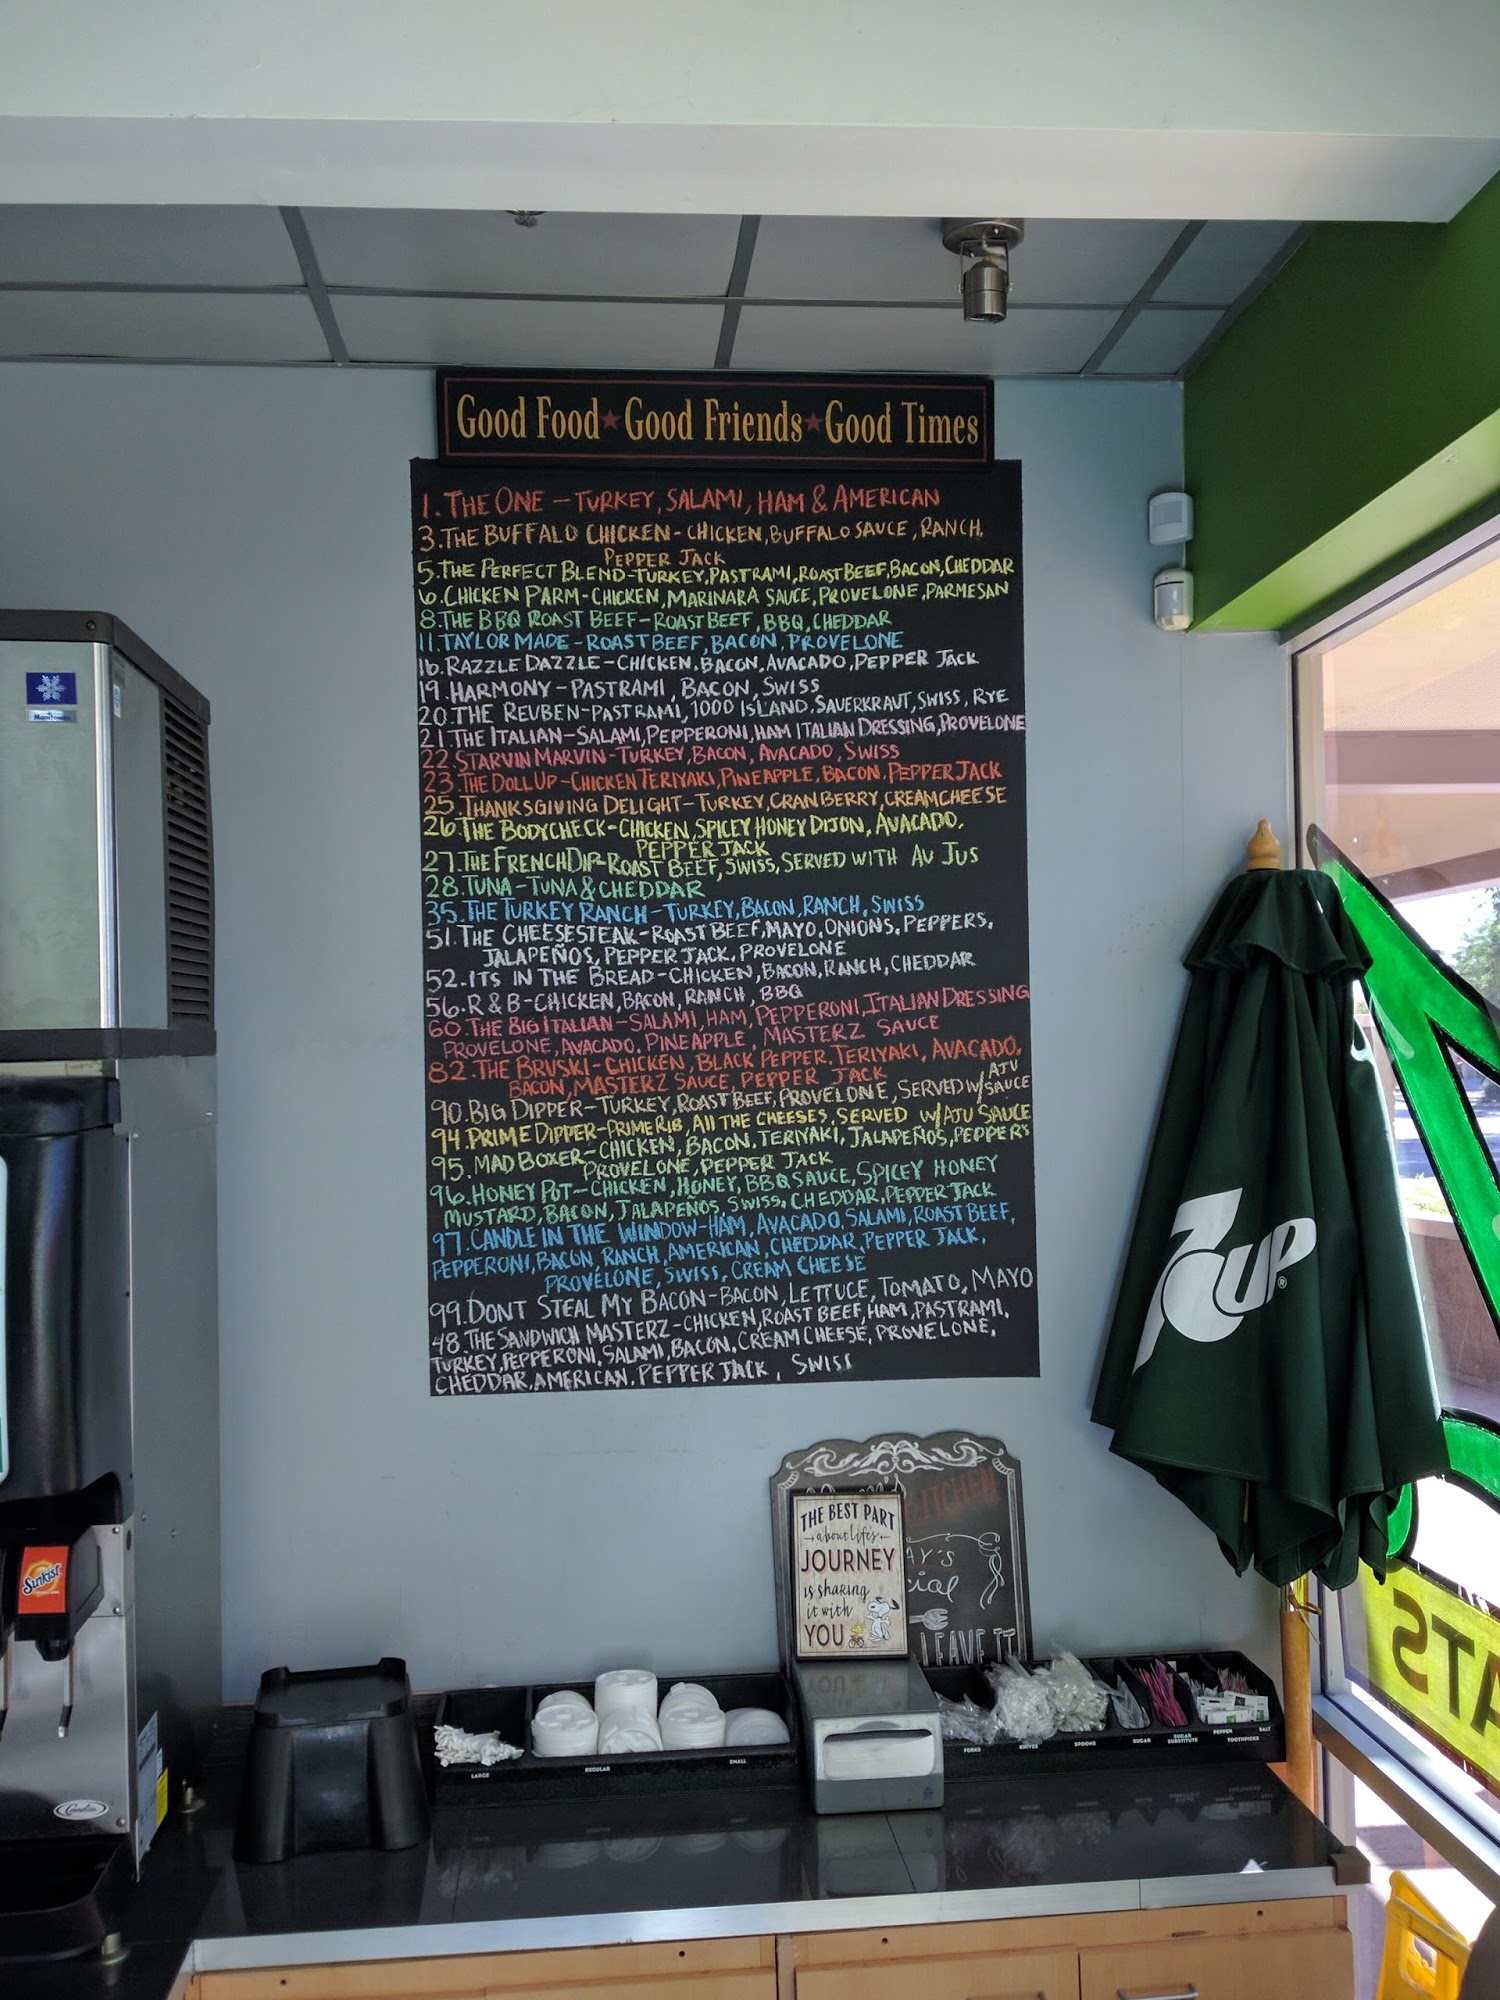 Good Food★Good Friends★Good Times
1. THE ONE – TURKEY, SALAMI, HAM & AMERICAN
3. THE BUFFALO CHICKEN - CHICKEN, BUFFALO SAUCE, RANCH,
PEPPER JACK
5. THE PERFECT BLEND-TURKEY, PASTRAMI, ROAST BEEF, BACON, CHEDDAR
6. CHICKEN PARM-CHICKEN, MARINARA SAUCE, PROVELONE, PARMESAN
8. THE BBQ ROAST BEEF-ROAST BEEF, BBQ, CHEDDAR
11. TAYLOR MADE-ROAST BEEF, BACON, PROVELONE
16. RAZZLE DAZZLE-CHICKEN, BACON, AVACADO, PEPPER JACK
19. HARMONY-PASTRAMI, BACON, SWISS
20. THE REUBEN-PASTRAMI, 1000 ISLAND, SAUERKRAUT, SWISS, RYE
21. THE ITALIAN-SALAMI, PEPPERONI, HAM ITALIAN DRESSING, PROVELONE
22. STARVIN MARVIN-TURKEY, BACON, AVACADO, SWISS
23. THE DOLL UP-CHICKEN TERIYAKI, PINEAPPLE, BACON, PEPPER JACK
25. THANKSGIVING DELIGHT-TURKEY, CRANBERRY, CREAM CHEESE
26. THE BODYCHECK-CHICKEN, SPICEY HONEY DIJON, AVACADO,
PEPPER JACK
27. THE FRENCH DIP-ROAST BEEF, SWISS, SERVED WITH AU JUS
28. TUNA-TUNA & CHEDDAR
35. THE TURKEY RANCH-TURKEY, BACON, RANCH, SWISS
51. THE CHEESESTEAK-ROAST BEEF, MAYO, ONIONS, PEPPERS,
JALAPEÑOS, PEPPER JACK, PROVELONE
52. ITS IN THE BREAD-CHICKEN, BACON, RANCH, CHEDDAR
56. R & B-CHICKEN, BACON, RANCH, BBQ
60. THE BIG ITALIAN-SALAMI, HAM, PEPPERONI, ITALIAN DRESSING
PROVELONE, AVACADO, PINEAPPLE, MASTERZ SAUCE
82. THE BRUSKI-CHICKEN, BLACK PEPPER, TERIYAKI, AVACADO,
BACON, MASTERZ SAUCE, PEPPER JACK
90. BIG DIPPER-TURKEY, ROAST BEEF, PROVELONE, SERVED W/ AJU SAUCE
94. PRIME DIPPER-PRIME RIB, All THE CHEESES, SERVED W/ AJU SAUCE
95. MAD BOXER-CHICKEN, BACON, TERIYAKI, JALAPEÑOS, PEPPERS
PROVELONE, PEPPER JACK
96. HONEY POT-CHICKEN, HONEY, BBQ SAUCE, SPICEY HONEY
MUSTARD, BACON, JALAPEÑOS, SWISS, CHEDDAR, PEPPER JACK
97. CANDLE IN THE WINDOW-HAM, AVACADO, SALAMI, ROAST BEEF,
PEPPERONI, BACON, RANCH, AMERICAN, CHEDDAR, PEPPER JACK,
PROVELONE, SWISS, CREAM CHEESE
99. DONT STEAL MY BACON-BACON, LETTUCE, TOMATO, MAYO
48. THE SANDWICH MASTERZ-CHICKEN, ROAST BEEF, HAM, PASTRAMI,
TURKEY, PEPPERONI, SALAMI, BACON, CREAM CHEESE, PROVELONE,
CHEDDAR, AMERICAN, PEPPER JACK, SWISS
7UP®
THE BEST PART
about life's
JOURNEY
is sharing
it with
YOU
KITCHEN
AY'S
cial
LEAVE IT
Sunkist
Manitowoc
Cornelius
LARGE
REGULAR
SMALL
FORKS
KNIVES
SPOONS
SUGAR
SUGAR SUBSTITUTE
PEPPER
SALT
TOOTHPICKS
ATS